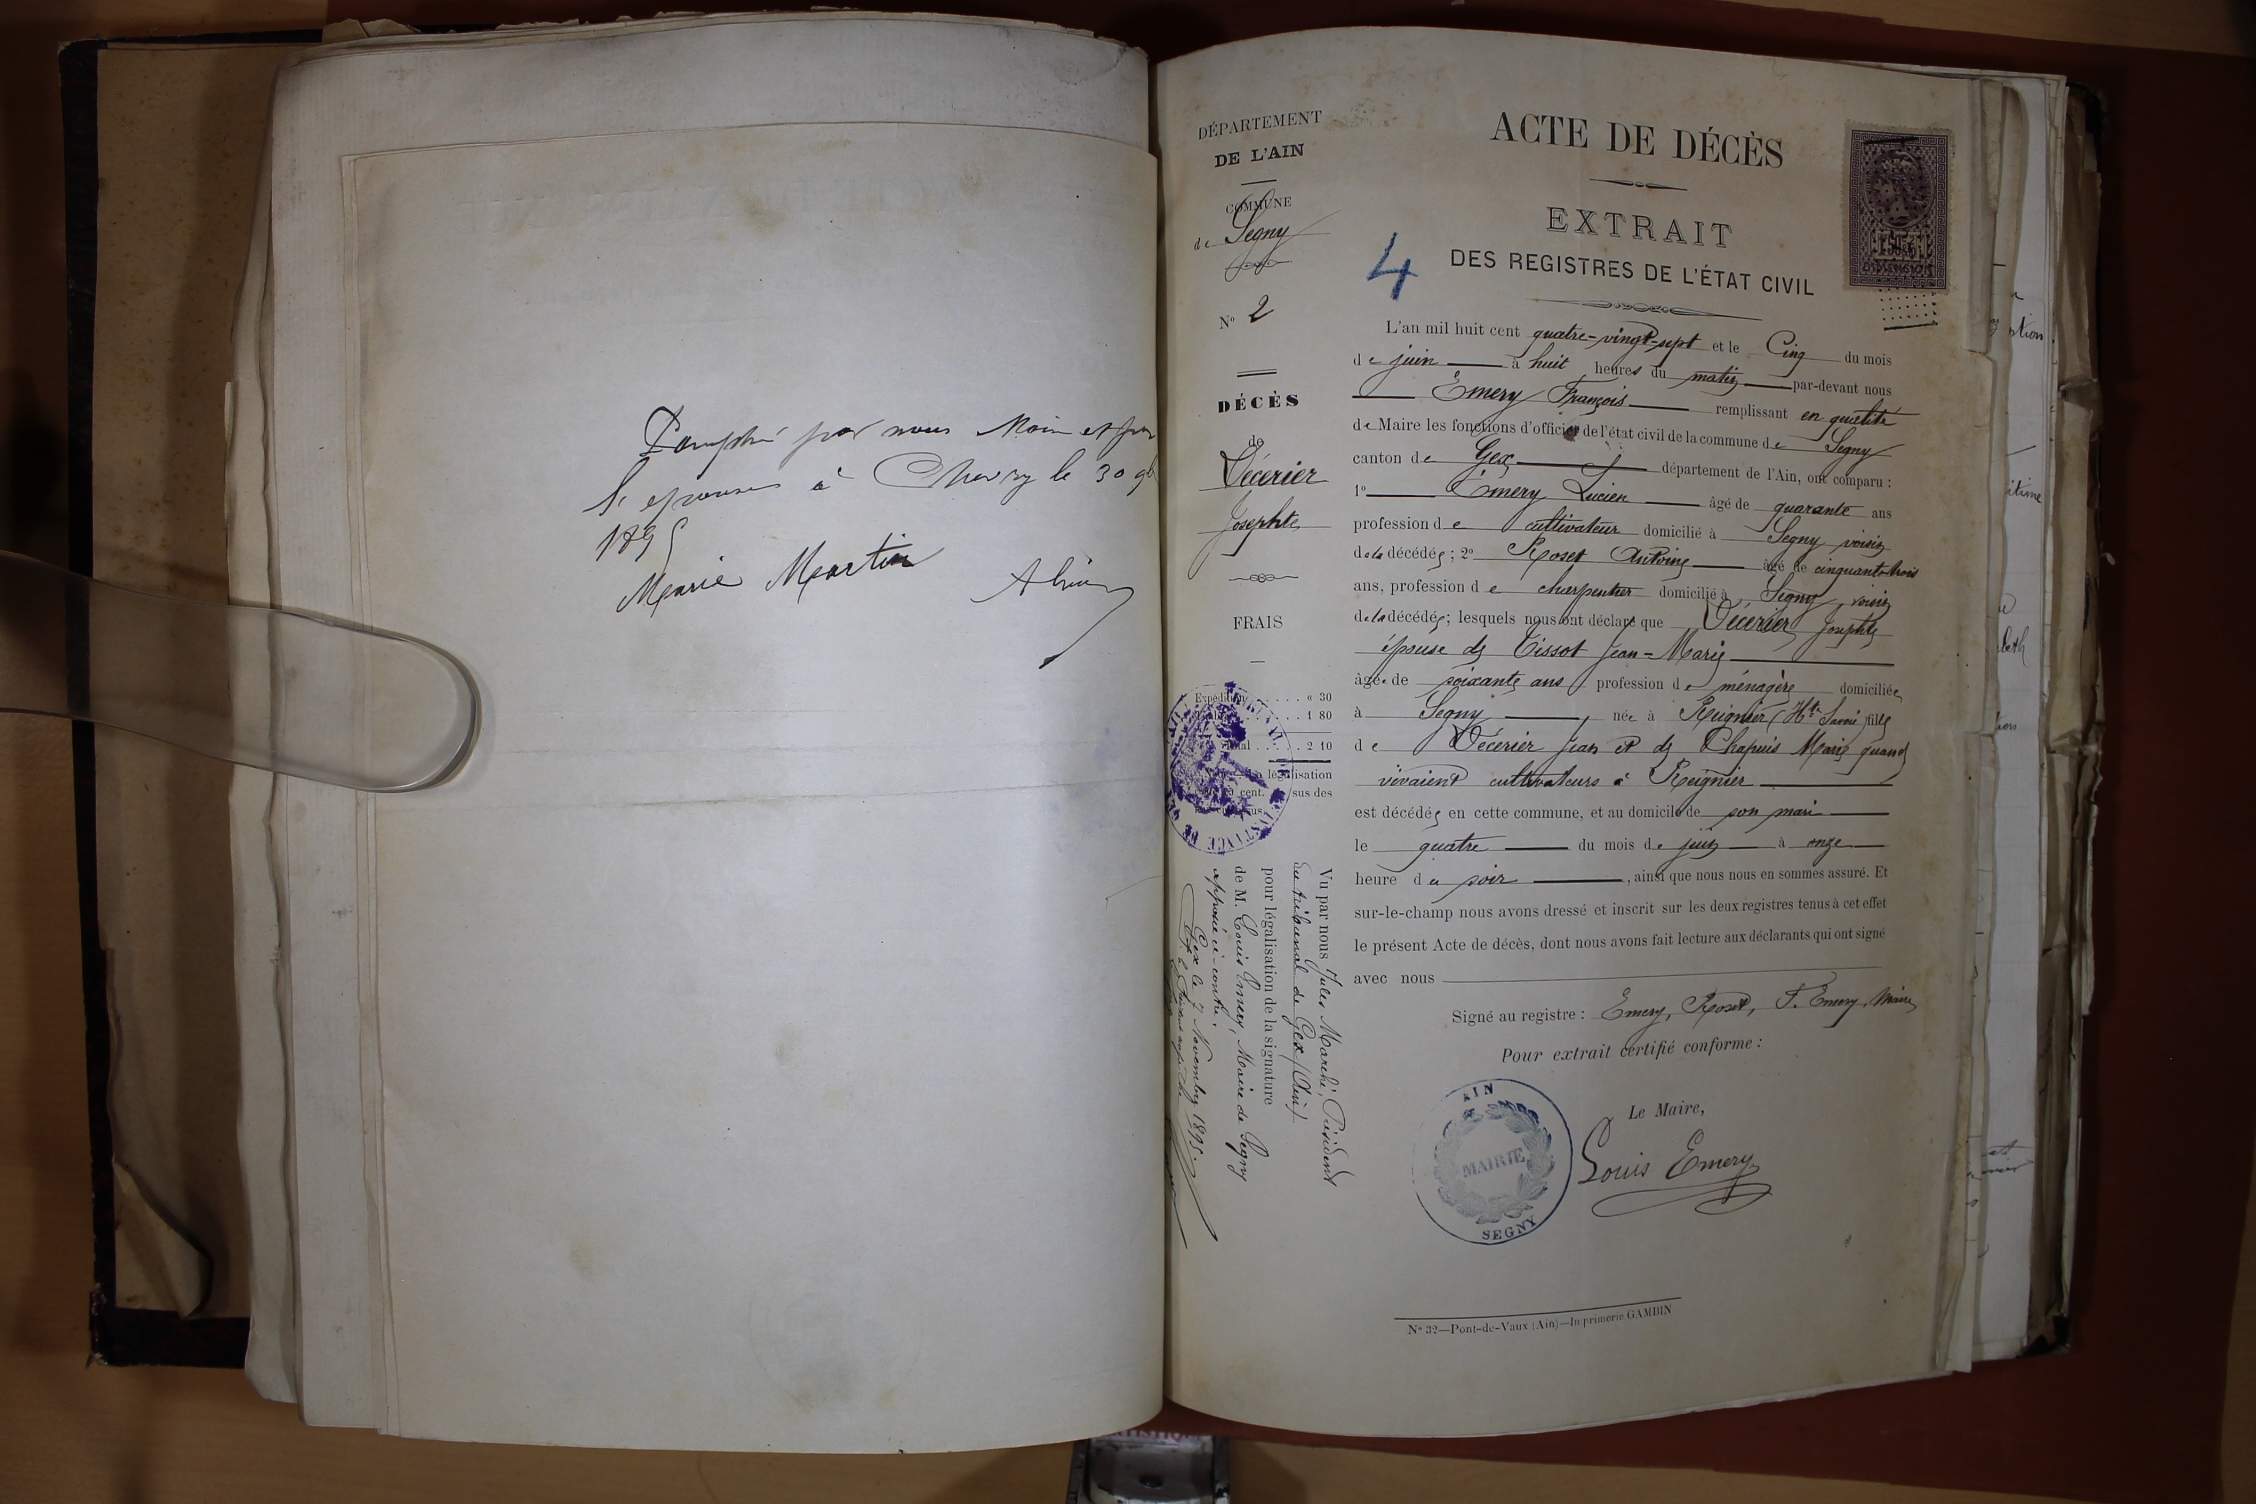 Paraphé par nous Maire et par
l'épouse à Chevry le 30 9b
1895
Marie Martin
DÉPARTEMENT
DE L'AIN
COMMUNE
de Segny
N° 2
DÉCÈS
de
Décerier
Josephte
FRAIS
Expédition . . . . . . « 30
. . . . 1 80
Total . . . . . 2 10
légalisation
cent. sus des
Vu par nous Jules Marché, Président
du tribunal de Gex (Ain)
pour légalisation de la signature
de M. Louis Emery, Maire de Segny
apposée ci-contre.
Gex le 7 Novembre 1895.
4
ACTE DE DÉCÈS
EXTRAIT
DES REGISTRES DE L'ÉTAT CIVIL
L'an mil huit cent quatre-vingt-sept et le Cinq du mois
de juin à huit heures du matin par-devant nous
Emery François remplissant en qualité
de Maire les fonctions d'officier de l'état civil de la commune de Segny
canton de Gex département de l'Ain, ont comparu :
1° Emery Lucien âgé de quarante ans
profession de cultivateur domicilié à Segny voisin
de la décédée ; 2° Roset Antoine âgé de cinquante-trois
ans, profession de charpentier domicilié à Segny, voisin
de la décédée ; lesquels nous ont déclaré que Décerier Josephte
épouse de Tissot Jean-Marie
âgée de soixante ans profession de ménagère domiciliée
à Segny née à Reignier (Hte Savoie) fille
de Décerier Jean et de Chapuis Marie quand
vivaient cultivateurs à Reignier
est décédée en cette commune, et au domicile de son mari
le quatre du mois de juin à onze
heure du soir , ainsi que nous nous en sommes assuré. Et
sur-le-champ nous avons dressé et inscrit sur les deux registres tenus à cet effet
le présent Acte de décès, dont nous avons fait lecture aux déclarants qui ont signé
avec nous
Signé au registre : Emery, Roset, F. Emery, Maire
Pour extrait certifié conforme :
Le Maire,
Louis Emery
AIN
MAIRIE
SEGNY
N° 32—Pont-de-Vaux (Ain)—Imprimerie GAMBIN